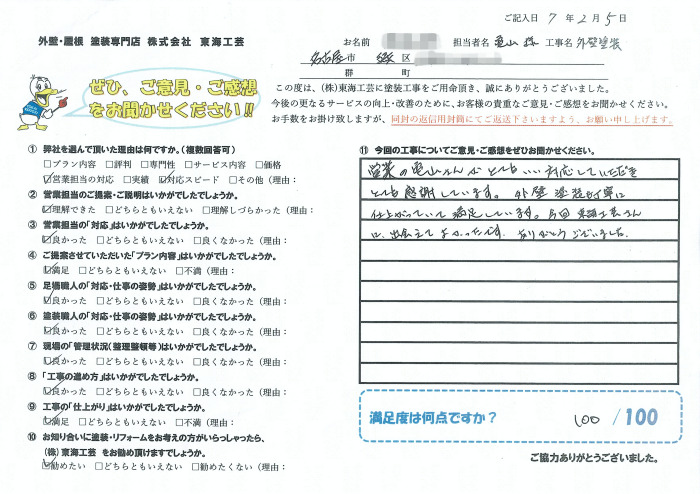 ご記入日 7年2月5日
外壁・屋根 塗装専門店 株式会社 東海工芸
お名前 担当者名 亀山 様 工事名 外壁塗装
名古屋市 区
郡 町
ぜひ、ご意見・ご感想
をお聞かせください!!
この度は、(株)東海工芸に塗装工事をご用命頂き、誠にありがとうございました。
今後の更なるサービスの向上・改善のために、お客様の貴重なご意見・ご感想をお聞かせください。
お手数をお掛け致しますが、同封の返信用封筒にてご返送下さいますよう、お願い申し上げます。
① 弊社を選んで頂いた理由は何ですか。(複数回答可)
□プラン内容 □評判 □専門性 □サービス内容 □価格
☑営業担当の対応 □実績 ☑対応スピード □その他(理由:
② 営業担当のご提案・ご説明はいかがでしたでしょうか。
☑理解できた □どちらともいえない □理解しづらかった(理由:
③ 営業担当の「対応」はいかがでしたでしょうか。
☑良かった □どちらともいえない □良くなかった(理由:
④ ご提案させていただいた「プラン内容」はいかがでしたでしょうか。
☑満足 □どちらともいえない □不満(理由:
⑤ 足場職人の「対応・仕事の姿勢」はいかがでしたでしょうか。
☑良かった □どちらともいえない □良くなかった(理由:
⑥ 塗装職人の「対応・仕事の姿勢」はいかがでしたでしょうか。
☑良かった □どちらともいえない □良くなかった(理由:
⑦ 現場の「管理状況(整理整頓等)はいかがでしたでしょうか。
☑良かった □どちらともいえない □良くなかった(理由:
⑧ 「工事の進め方」はいかがでしたでしょうか。
☑良かった □どちらともいえない □良くなかった(理由:
⑨ 工事の「仕上がり」はいかがでしたでしょうか。
☑満足 □どちらともいえない □不満(理由:
⑩ お知り合いに塗装・リフォームをお考えの方がいらっしゃったら、
(株)東海工芸 をお勧め頂けますでしょうか。
☑勧めたい □どちらともいえない □勧めたくない(理由:
⑪ 今回の工事についてご意見・ご感想をぜひお聞かせください。
営業の亀山さんがとてもいい対応していただき
とても感謝しています。外壁塗装も丁寧に
仕上がっていて満足しています。今回東海工芸さん
に、出会えてよかったです。ありがとうございました。
満足度は何点ですか? 100 /100
ご協力ありがとうございました。